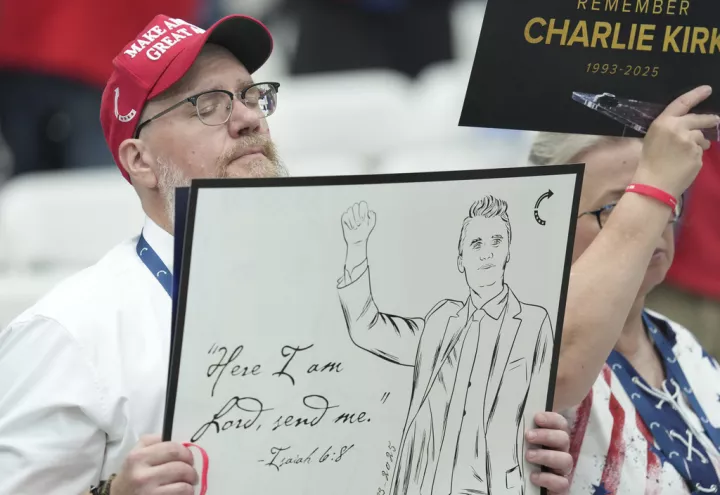 MAKE A
GREAT
REMEMBER
CHARLIE KIRK
1993-2025
"Here I am
Lord, send me."
-Isaiah 6:8